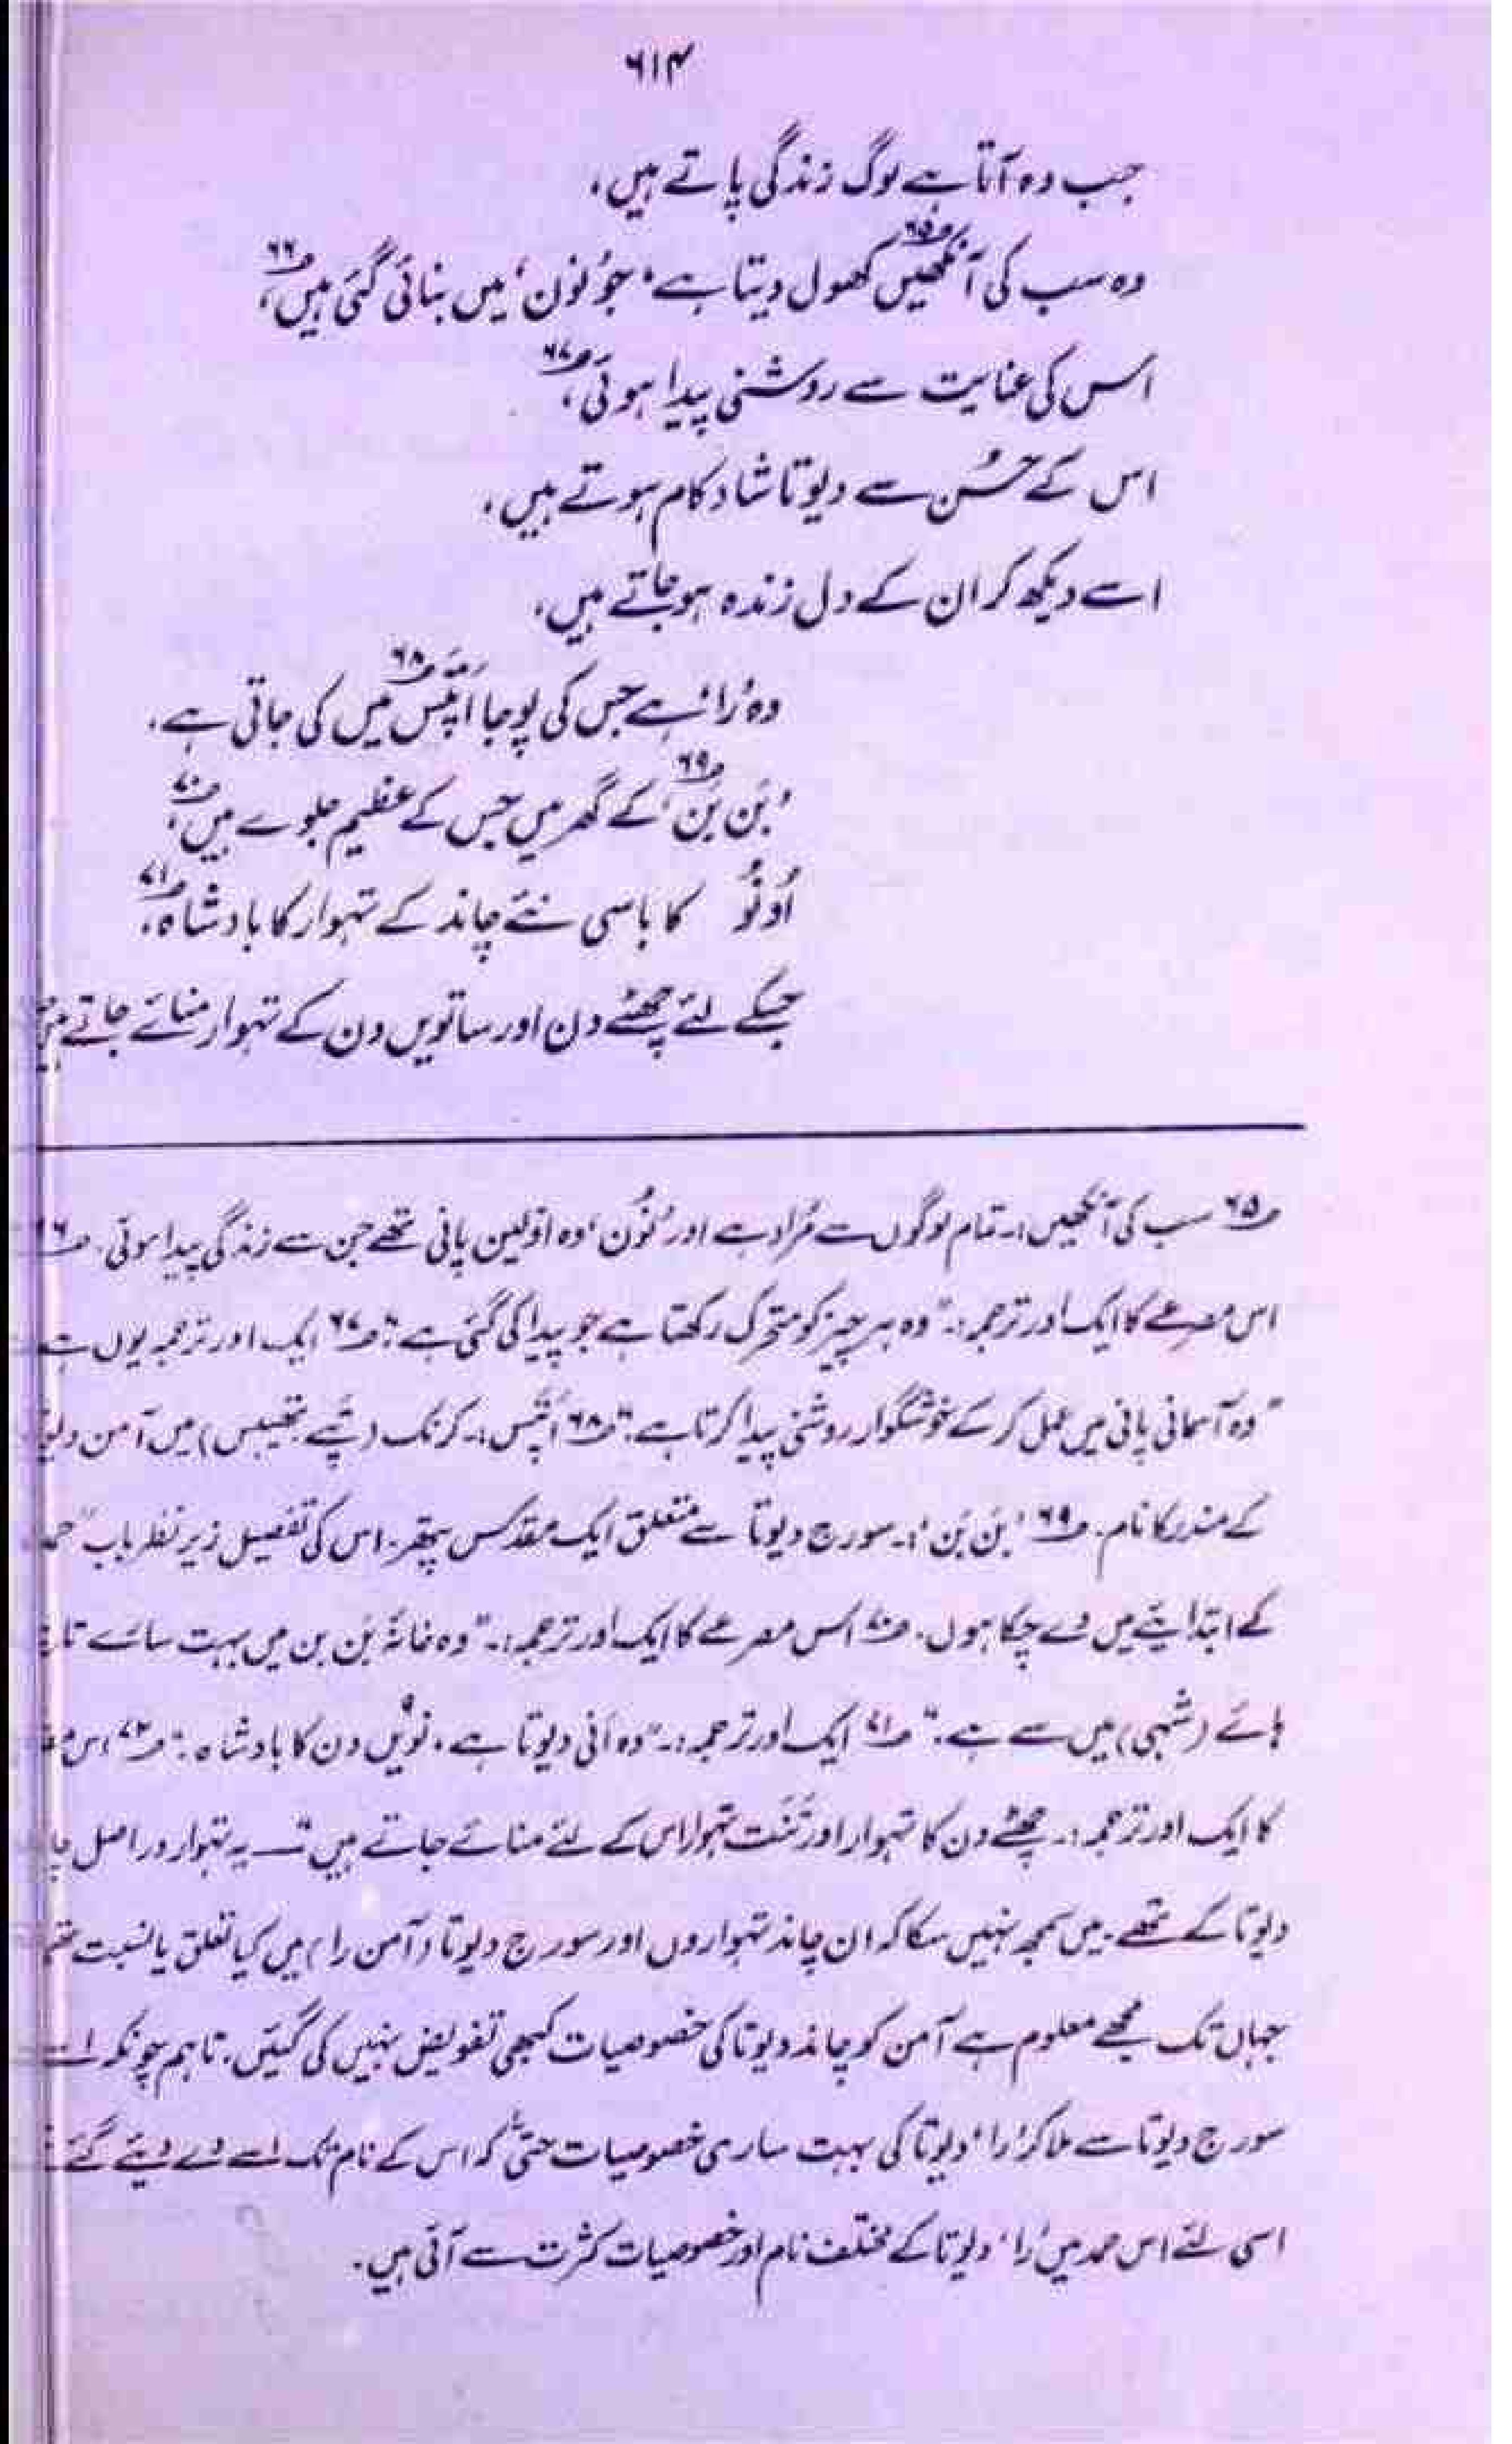 ۶۱۴
جب وہ آتا ہے لوگ زندگی پاتے ہیں،
وہ سب کی آنکھیں<sup>۶۵</sup> کھول دیتا ہے، جو ’نوُن‘ میں بنائی گئی ہیں<sup>۶۶</sup>،
اس کی عنایت سے روشنی پیدا ہوئی<sup>۶۷</sup>،
اس کے حسُن سے دیوتا شاد کام ہوتے ہیں،
اسے دیکھ کر ان کے دل زندہ ہو جاتے ہیں،
وہ ’را‘ ہے جس کی پوجا اَپِتس<sup>۶۸</sup> میں کی جاتی ہے۔
’بَن بَن‘<sup>۶۹</sup> کے گھر میں جس کے عظیم جلوے ہیں<sup>۷۰</sup>،
اُونُو کا باسی نئے چاند کے تہوار کا بادشاہ<sup>۷۱</sup>،
جسکے لئے چھٹے دن اور ساتویں دن کے تہوار منائے جاتے ہیں
<sup>۶۵</sup> سب کی آنکھیں :۔ تمام لوگوں سے مُراد ہے اور ’نوُن‘ وہ اوّلین پانی تھے جن سے زندگی پیدا ہوئی۔ <sup>۶۶</sup>
اس مصرعے کا ایک اور ترجمہ :۔ ”وہ ہر چیز کو متحرک رکھتا ہے جو پیدا کی گئی ہے“۔ <sup>۶۷</sup> ایک اور ترجمہ یوں ہے
”وہ آسمانی پانی میں عمل کر کے خوشگوار روشنی پیدا کرتا ہے۔“ <sup>۶۸</sup> اَپِتس :۔ کرنک (تھیبس) میں آمن
کے مندر کا نام۔ <sup>۶۹</sup> ’بَن بَن‘ :۔ سورج دیوتا سے متعلق ایک مقدس پتھر۔ اس کی تفصیل زیر نظر باب
کے ابتدایئے میں دے چکا ہوں۔ <sup>۷۰</sup> اس مصرعے کا ایک اور ترجمہ :۔ ”وہ خانۂ بَن بن میں بہت سائے
ہائے (شبہی) میں سے ہے۔“ <sup>۷۱</sup> ایک اور ترجمہ :۔ ”وہ اَنی دیوتا ہے، نویں دن کا بادشاہ“۔ <sup>۷۲</sup> اس
کا ایک اور ترجمہ :۔ چھٹے دن کا تہوار اور تَنَت تہوار اس کے لئے منائے جاتے ہیں“ — یہ تہوار دراصل
دیوتا کے تھے۔ میں سمجھ نہیں سکا کہ ان چاند تہواروں اور سورج دیوتا (آمن را) میں کیا تعلق یا نسبت
جہاں تک مجھے معلوم ہے آمن کو چاند دیوتا کی خصوصیات کبھی تفویض نہیں کی گئیں۔ تاہم چونکہ اسے
سورج دیوتا سے ملا کر ’را‘ دیوتا کی بہت ساری خصوصیات حتیٰ کہ اس کے نام تک اسے دے دیئے گئے
اسی لئے اس حمد میں ’را‘ دیوتا کے مختلف نام اور خصوصیات کثرت سے آئی ہیں۔